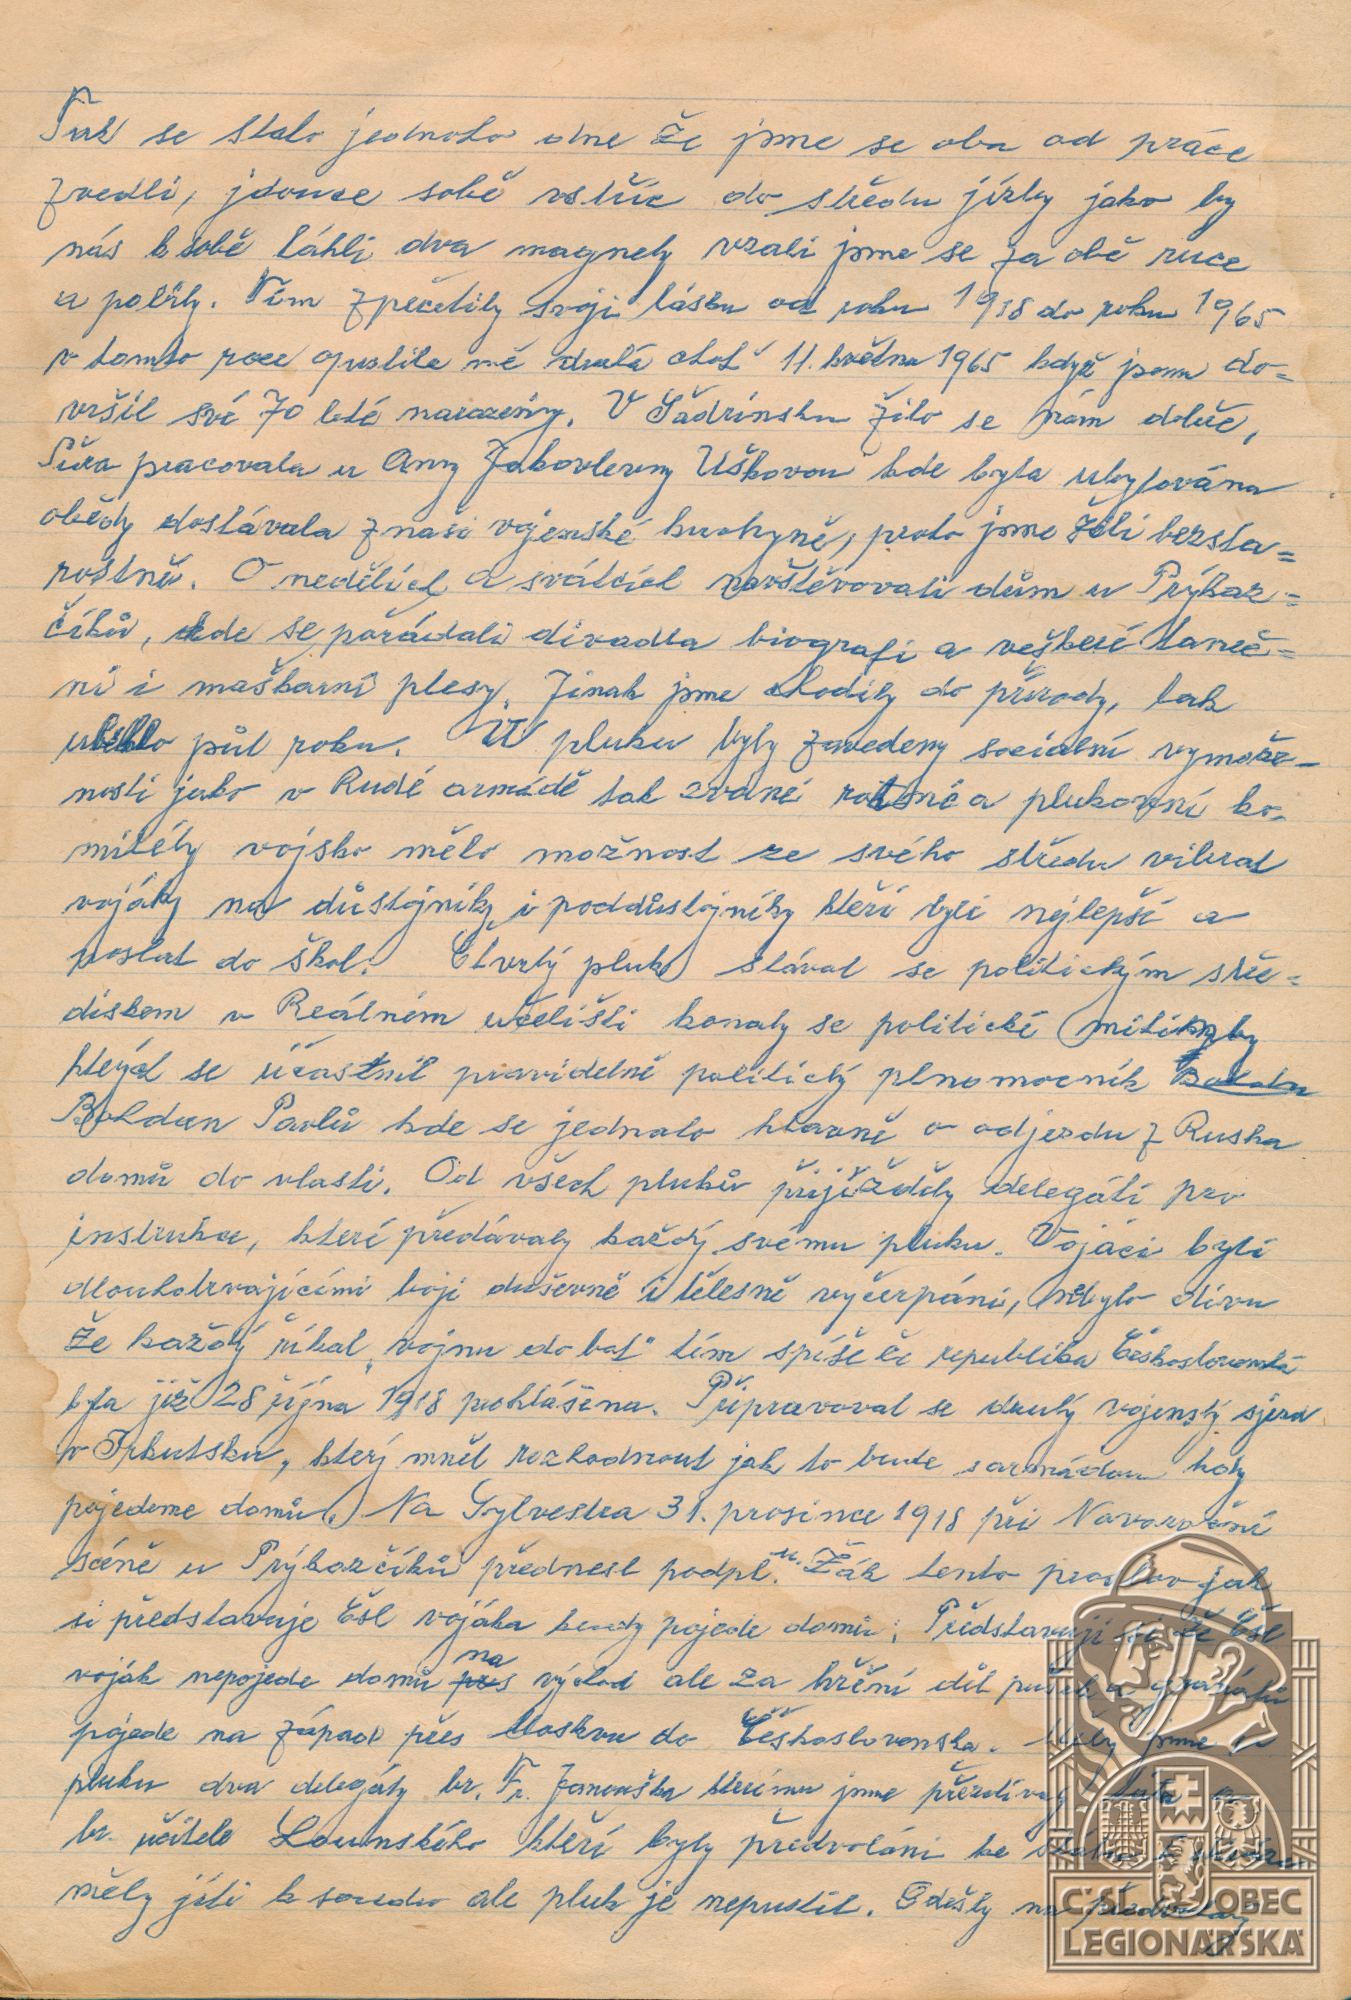 Tak se stalo jednoho dne že jsme se oba od práce
zvedli, jdouce sobě vstříc do středu jizby jako by
nás k sobě táhli dva magnety vzali jsme se za obě ruce
a políbily. Tím zpečetily svoji lásku od roku 1918 do roku 1965
v tomto roce opustila mě drahá choť 11. května 1965 když jsem do=
vršil své 70 leté narozeniny. V Šadrinsku žilo se nám dobře,
Šura pracovala u Anny Jakovlevny Uškovou kde byla ubytována
obědy dostávala z naší vojenské kuchyně, proto jsme žili bezsta=
rostně. O nedělích a svátcích navštěvovali dům u Prýkaz=
čiků, kde se pořádali divadla biografi a veškeré taneč=
ní i maškarní plesy. Jinak jsme chodily do přírody, tak
uběhlo půl roku. U pluku byly zavedeny sociální vymože-
nosti jako v Rudé armádě tak zvané rotné a plukovní ko-
mitéty vojsko mělo možnost ze svého středu vibrat
vojáky na důstojníky i poddůstojníky kteří byli nejlepší a
poslat do škol. Čtvrtý pluk stával se politickým stře=
diskem v Reálném učelišti konaly se politické mitinky
kterých se účastnil pravidelně politický plnomocník
Bohdan Pavlů kde se jednalo hlavně o odjezdu z Ruska
domů do vlasti. Od všech pluků přijížděly delegáti pro
instrukce, které předávaly každý svému pluku. Vojáci byli
dlouhotrvajícími boji duševně i tělesně vyčerpáni, nebylo divu
že každý říkal „vojnu do bot" tím spíše že republika Československá
byla již 28 října 1918 prohlášena. Připravoval se druhý vojenský sjezd
v Irkutsku, který mněl rozhodnout jak to bude s armádou kdy
pojedeme domů. Na Sylvestra 31. prosince 1918 při Novoroční
scéně u Prýkazčiků přednesl podpl. Žák tento proslov jak
si představuje Čsl vojáka kudy pojede domů; Představuji si že Čsl
voják nepojede domů na východ ale za hřění děl pušek a granátů
pojede na západ přes Moskvu do Československa. Měly jsme u
pluku dva delegáty br. Fr. Janouška kterému jsme přezdívaly táta a
br. učitele Lounského kteří byly předvoláni ke
měly jíti k soudu ale pluk je nepustil. Odešly na
ČSL. OBEC
LEGIONÁŘSKÁ